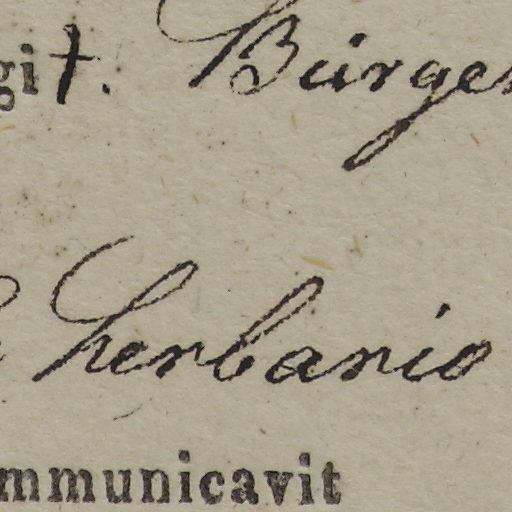 git. Bürger
herbario
mmunicavit